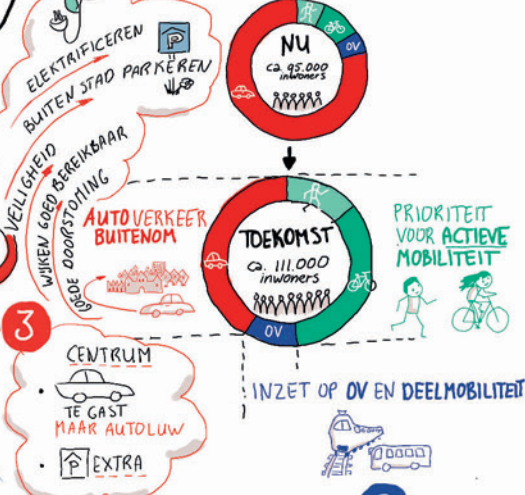 ELEKTRIFICEREN
P
BUITEN STAD PARKEREN
VEILIGHEID
WIJKEN GOED BEREIKBAAR
GOEDE DOORSTOMING
NU
ca. 95.000
inwoners
OV
AUTOVERKEER
BUITENOM
TOEKOMST
ca. 111.000
inwoners
OV
PRIORITEIT
VOOR ACTIEVE
MOBILITEIT
3
CENTRUM
TE GAST
MAAR AUTOLUW
P EXTRA
INZET OP OV EN DEELMOBILITEIT